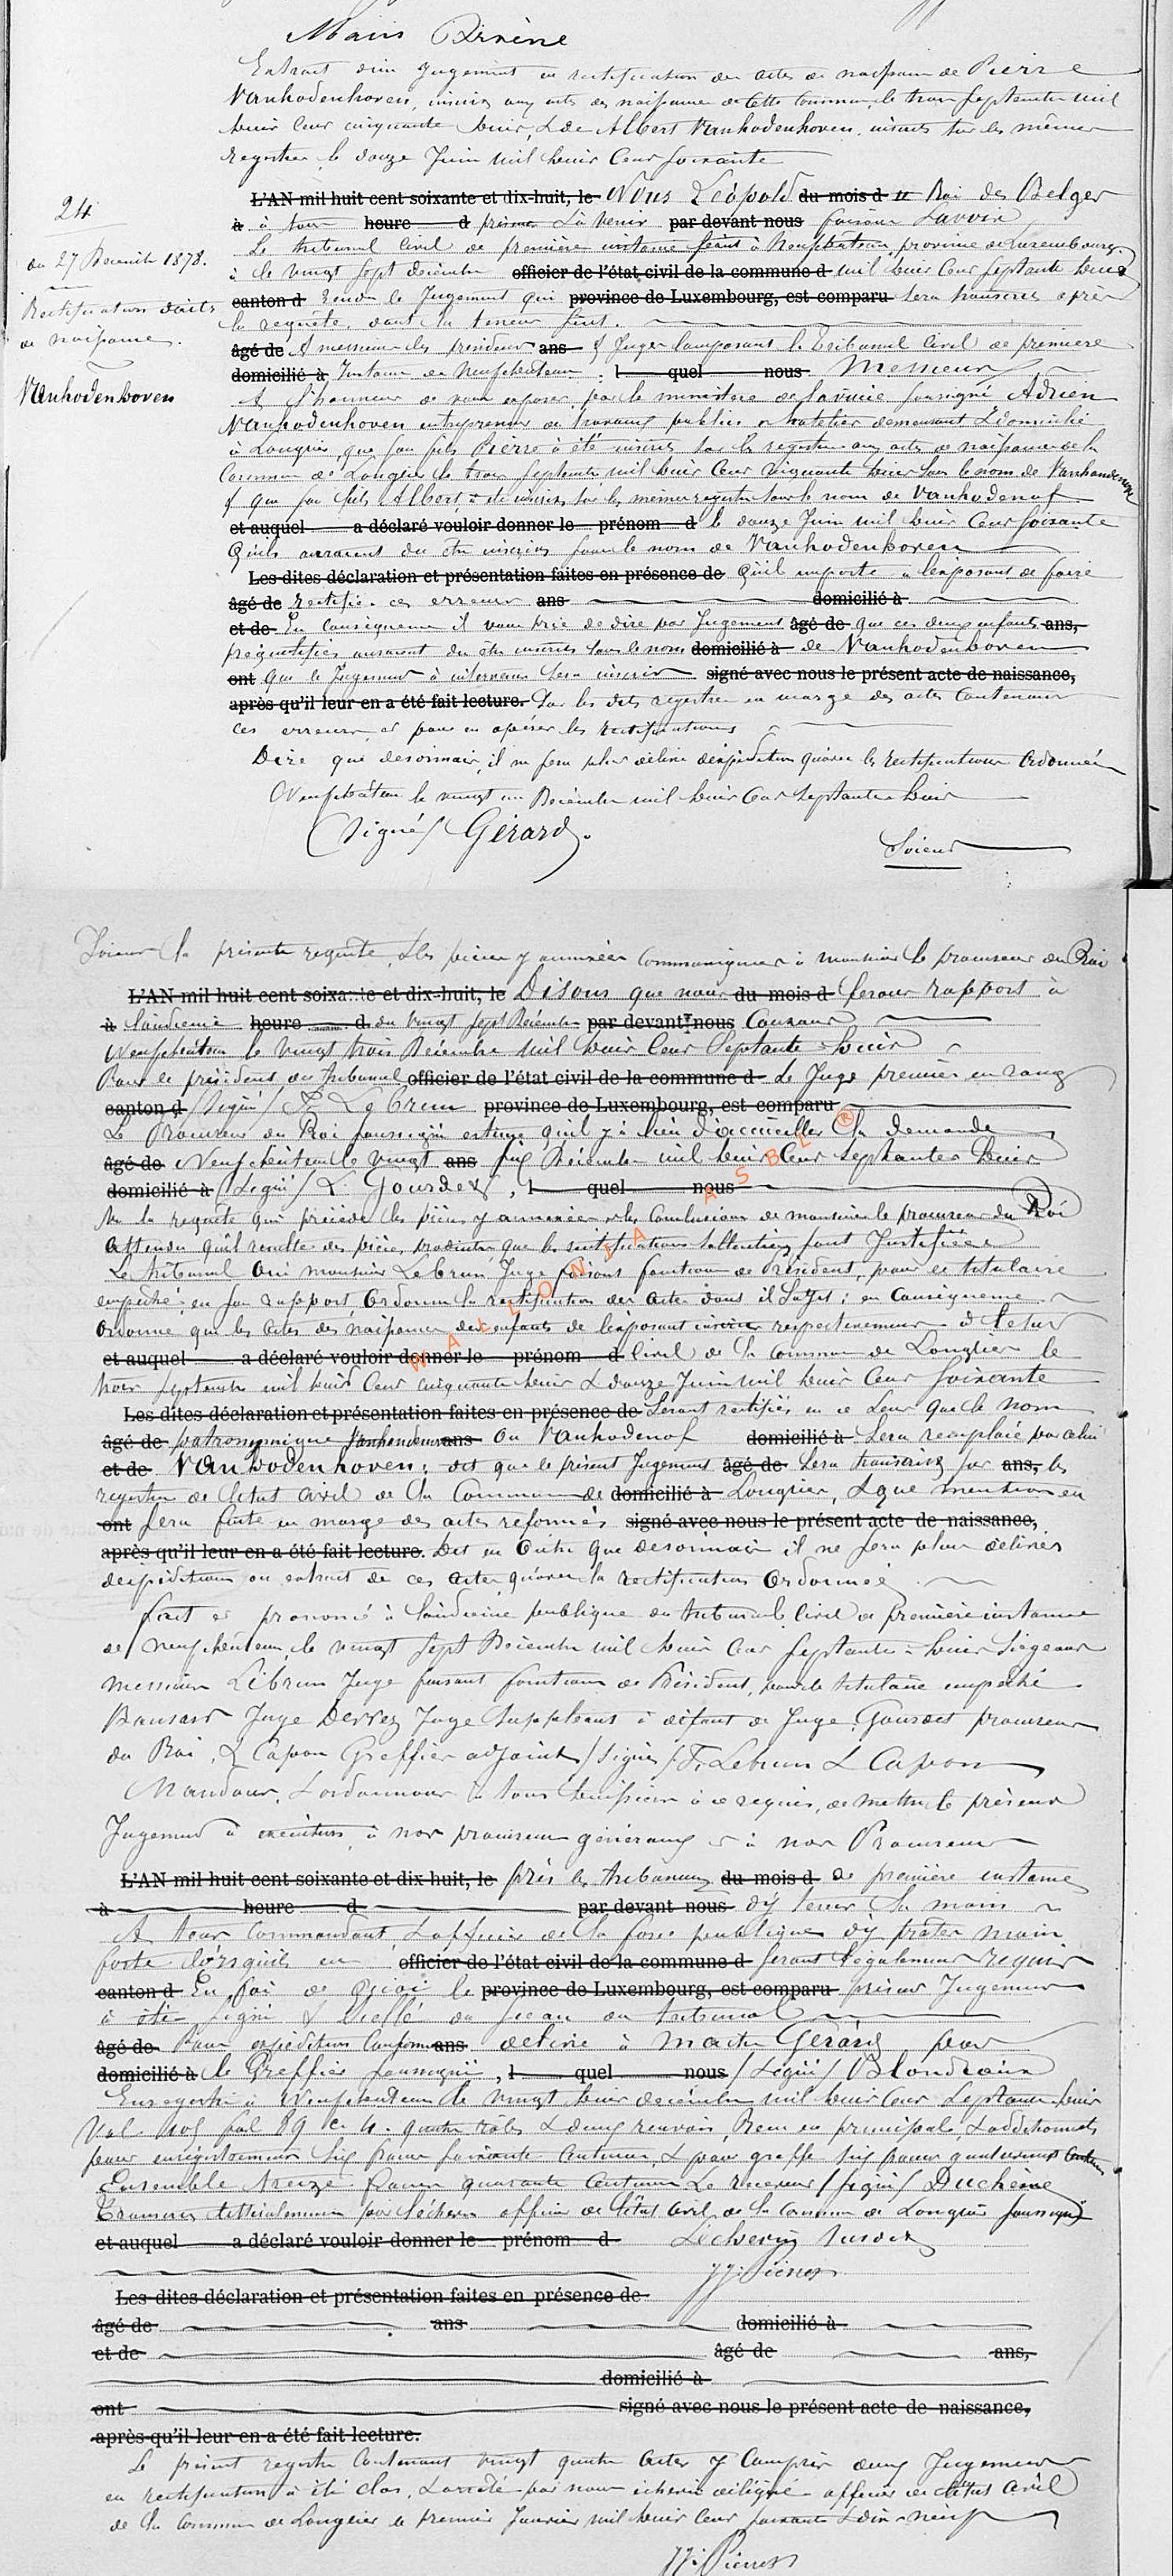 Extrait d'un Jugement en rectification des actes de naissance de Pierre
Vanhodenhoven, inscrits aux actes de naissance de cette Commune, le trois Septembre mil
huit Cent cinquante huit, & de Albert Vanhodenhoven, inscrits sur les mêmes
registres le douze Juin mil huit Cent soixante
24
du 27 Décembre 1878.
Rectification d'actes
de naissance.
Vanhodenhoven
L'AN mil huit cent soixante et dix-huit, le Nous Léopold du mois d II Roi des Belges
à à tous heure d présens & à venir par devant nous faisons savoir
Le tribunal Civil de première instance séant à Neufchâteau province de Luxembourg
à le vingt sept décembre officier de l'état civil de la commune d mil huit Cent septante huit
canton d rendu le Jugement qui province de Luxembourg, est comparu sera transcrit après
la requête, dont la teneur suit.
âgé de A messieurs les président ans & Juges Composant le tribunal Civil de première
domicilié à Instance de Neufchâteau. l quel nous Messieurs
A l'honneur de vous exposer, par le ministère de l'avoué soussigné Adrien
Vanhodenhoven entrepreneur de travaux publics & hôtelier demeurant & domicilié
à Longlier, que son fils Pierre à été inscrit sur les registres aux actes de naissance de la
Commune de Longlier le trois Septembre mil huit Cent cinquante huit sous le nom de
& que son fils Albert, à été inscrit, sur les mêmes registres sous le nom de Vanhodenof
et auquel a déclaré vouloir donner le prénom d le douze Juin mil huit Cent soixante
Qu'ils auraient du être inscrits sous le nom de Vanhodenhoven
Les dites déclaration et présentation faites en présence de Qu'il importe à l'exposant de faire
âgé de rectifier ces erreurs ans domicilié à
et de En Conséquence il vous prie de dire par Jugement âgé de que ces deux enfants ans,
préqualifiés auraient du être inscrits sous le nom domicilié à de Vanhodenhoven
ont que le Jugement à intervenir sera inscrit signé avec nous le présent acte de naissance,
après qu'il leur en a été fait lecture. Sur les dits registres en marge des actes Contenant
ces erreurs, et pour en opérer les rectifications
Dire que désormais, il ne sera plus délivré d'expédition qu'avec les rectifications Ordonnées
Neufchâteau le vingt un Décembre mil huit Cent septante huit
(Signé) Gérard.
Soient
Soient la présente requête, & les pièces y annexées Communiquées à monsieur le procureur du Roi
L'AN mil huit cent soixante et dix-huit, le Disons que nous du mois d ferons rapport à
à l'audience heure d du vingt sept Décembre par devant nous Courant
Neufchâteau le vingt trois Décembre mil huit Cent Septante huit
Pour le président du tribunal officier de l'état civil de la commune d Le Juge premier en rang
canton d /Signé/ F. Lebrun province de Luxembourg, est comparu
Le Procureur du Roi soussigné estime qu'il y à lieu d'accueillir la demande
âgé de Neufchâteau le vingt ans six Décembre mil huit Cent septante huit
domicilié à /Signé/ L. Gourdet, l quel nous
Vu la requête qui précède les pièces y annexées & les Conclusions de monsieur le procureur du Roi
Attendu qu'il resulte des pièces produites que les rectifications sollicitées sont Justifiées
Le tribunal Ouï monsieur Lebrun Juge faisant fonction de Président, pour le titulaire
empêché, en son rapport, Ordonne la rectification des actes dont il s'agit; en Conséquence
Ordonne que les actes de naissance des enfants de l'exposant inscrits respectivement à l'état
et auquel a déclaré vouloir donner le prénom d Civil de la Commune de Longlier le
trois septembre mil huit Cent cinquante huit & douze Juin mil huit Cent soixante
Les dites déclaration et présentation faites en présence de Seront rectifiés en ce sens que le nom
âgé de patronymique ans ou Vanhodenof domicilié à Sera remplacé par celui
et de Vanhodenhoven; dit que le présent Jugement âgé de Sera transcrit sur ans, les
registres de l'état civil de la Commune de domicilié à Longlier, & que mention en
ont sera faite en marge des actes reformés signé avec nous le présent acte de naissance,
après qu'il leur en a été fait lecture. Dit en Outre que desormais il ne sera plus délivré
d'expédition ou extrait de ces actes, qu'avec la rectification Ordonnée
fait et prononcé à l'audience publique du tribunal Civil de première instance
de Neufchâteau, le vingt sept Décembre mil huit Cent septante huit Siégeant
messieurs Lebrun Juge faisant fonction de Président, pour le titulaire empêché
Juge Derrez Juge Suppléant à défaut de Juge, Gourdet procureur
du Roi, & Capon Greffier adjoint /Signés/ F. Lebrun & Capon
Mandons, & ordonnons à tous huissiers à ce requis, de mettre le présent
Jugement à exécution, à nos procureurs généraux & à nos Procureurs
L'AN mil huit cent soixante et dix huit, le près les tribunaux du mois d de première instance
à heure d par devant nous d'y tenir la main
A tous Commandants, & officiers de la force publique d'y prêter main
forte lorsqu'ils en officier de l'état civil de la commune d seront légalement requis
canton d En foi de quoi le province de Luxembourg, est comparu présent Jugement
à été signé & scellé du sceau du tribunal
âgé de Pour expédition Conforme ans délivré à Maître Gérard par
domicilié à le Greffier soussigné, l quel nous /Signé/
Enregistré à Neufchâteau le vingt huit décembre mil huit Cent Septante huit
Vol. fol 89 C. 4. quatre rôles & deux renvois, Reçu en principal, & additionnels
pour enregistrement six francs soixante centimes, & pour greffe six francs quatre-vingt centimes
Ensemble treize francs quarante centimes Le receveur /signé/ Duchène
Transcrit littéralement par l'échevin officier de l'état civil de la commune de Longlier soussigné
et auquel a déclaré vouloir donner le prénom d L'échevin susdit
JJ. Pierret
Les dites déclaration et présentation faites en présence de
âgé de ans domicilié à
et de âgé de ans,
domicilié à
ont signé avec nous le présent acte de naissance,
après qu'il leur en a été fait lecture.
Le présent registre Contenant vingt quatre actes y Compris deux Jugements
en rectification à été clos, & arrêté par nous échevin délégué officier de l'état civil
de la Commune de Longlier le premier Janvier mil huit Cent soixante & dix-neuf
JJ. Pierret
WALLONIA ASBL ®